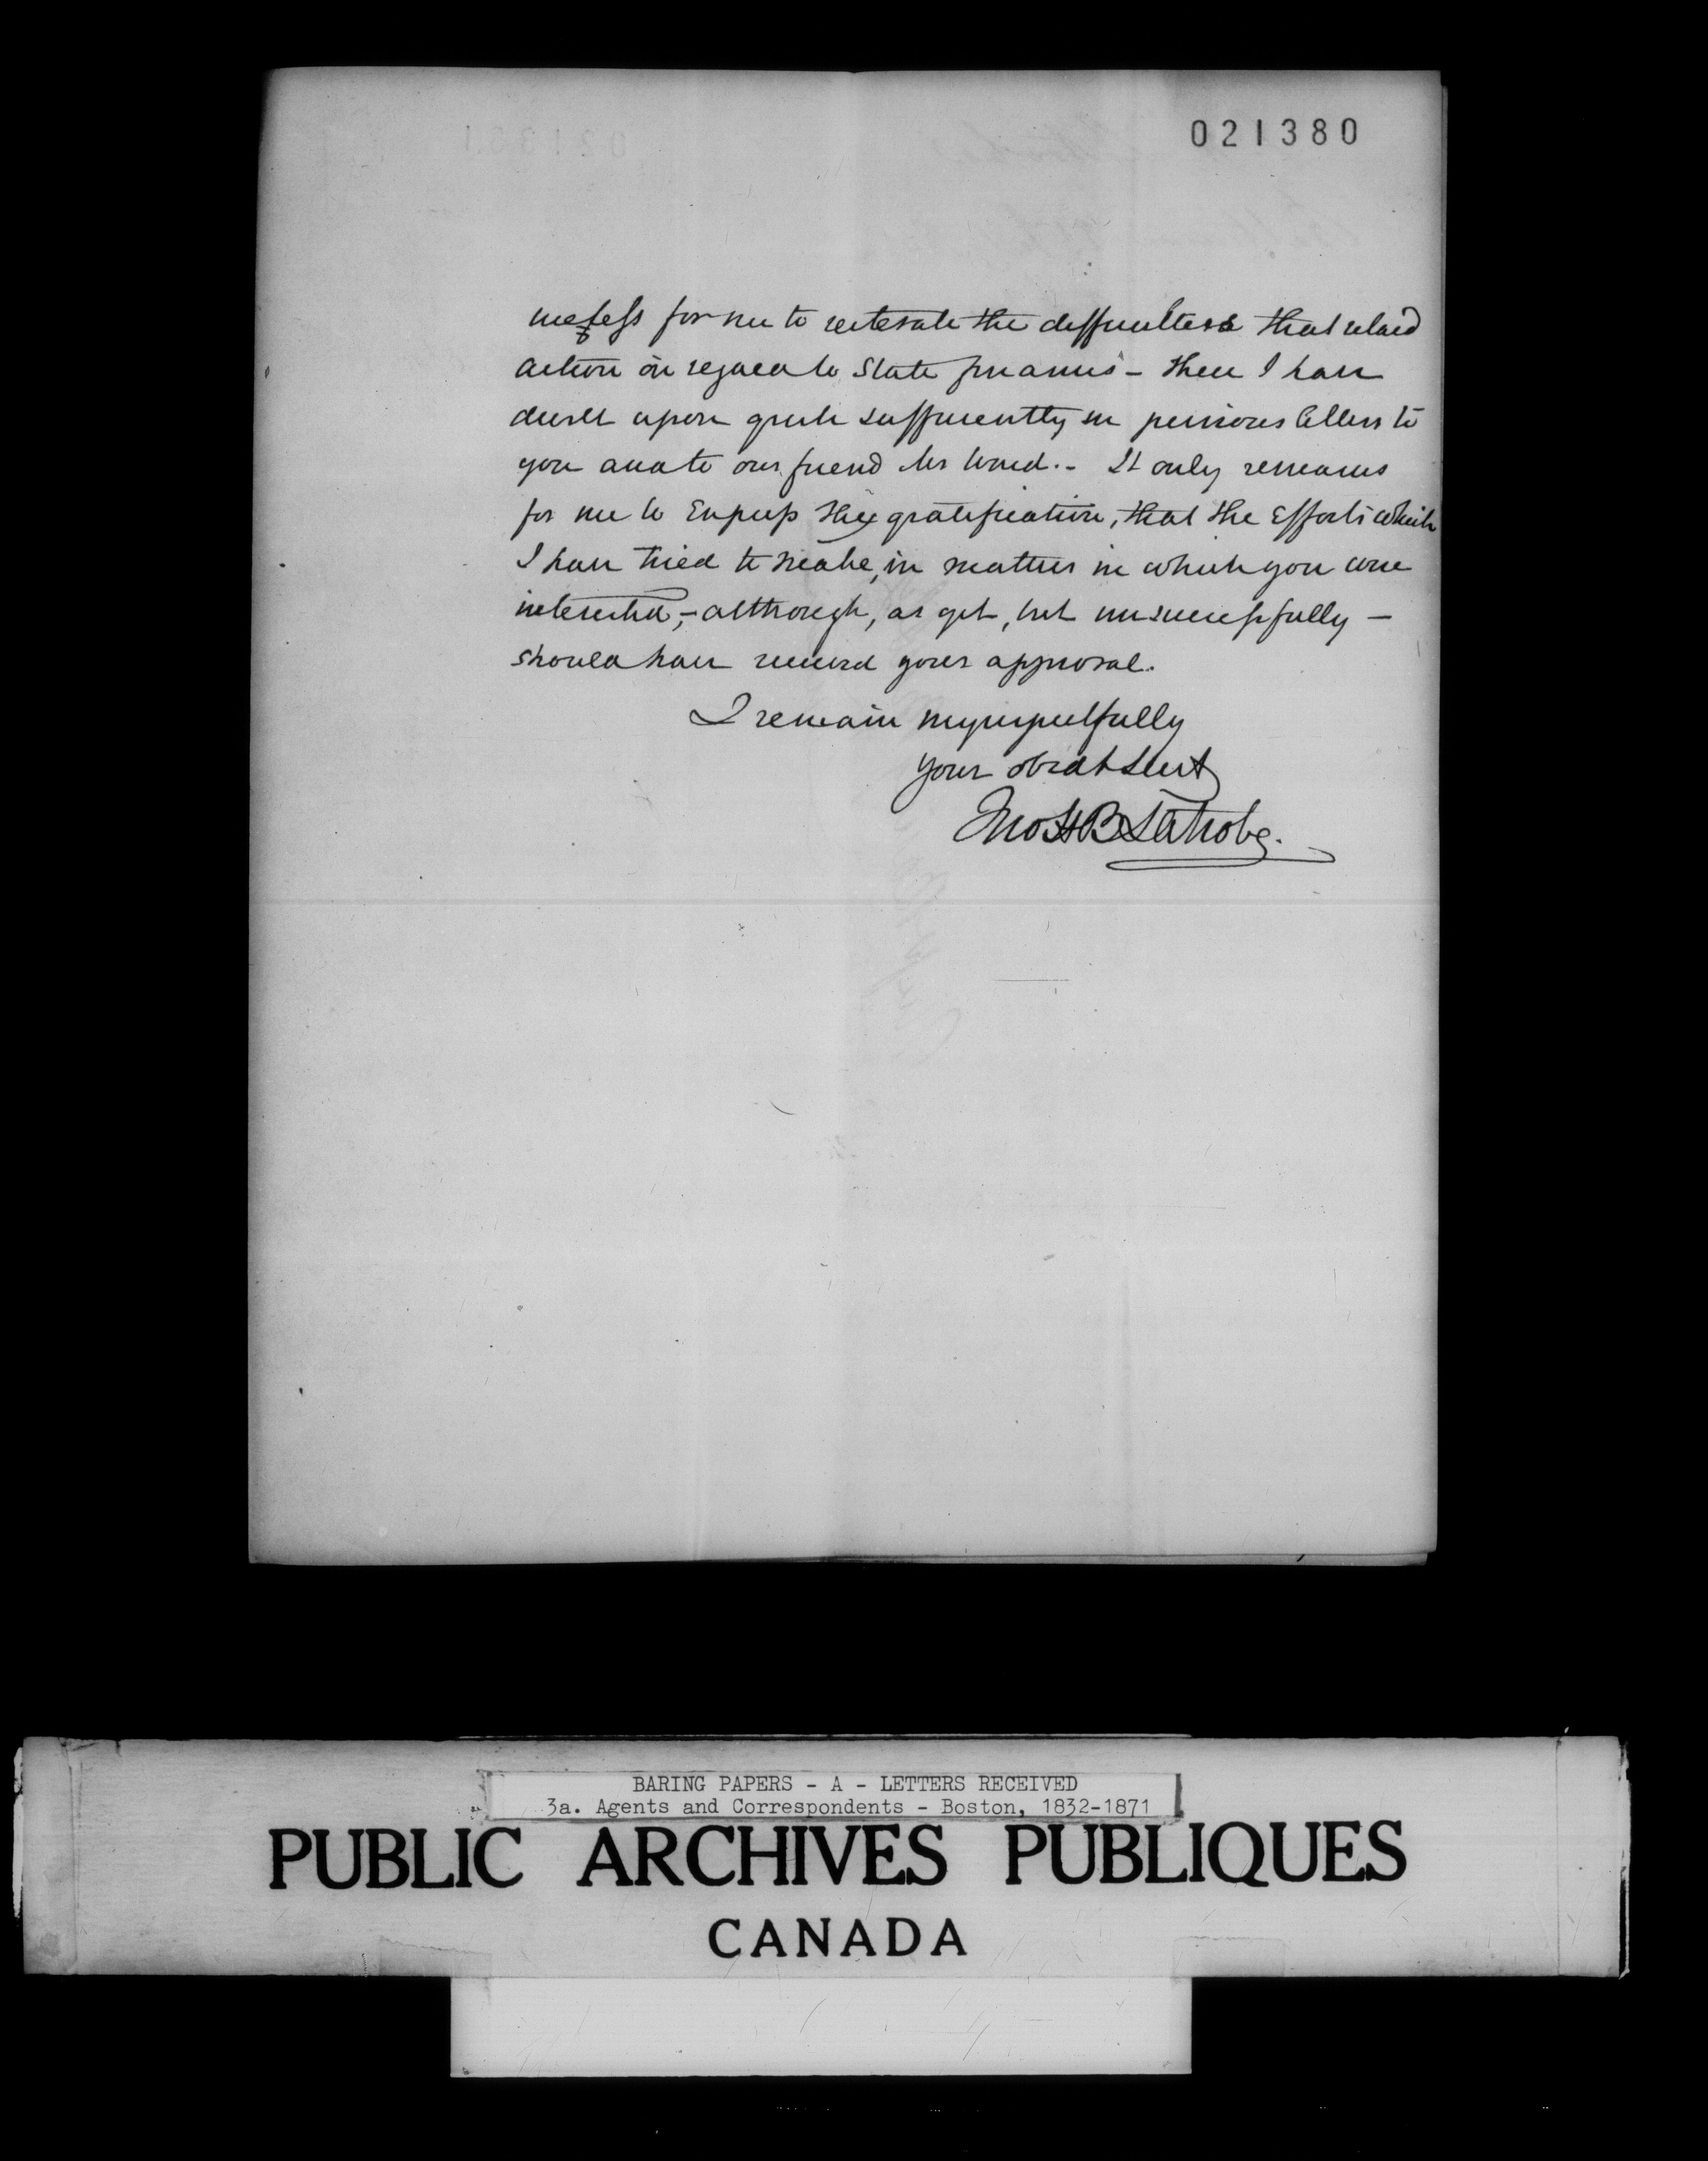 021380
useless for me to reiterate the difficulties that retard
action in regard to State finances - these I have
dwelt upon quite sufficiently in previous letters to
you and to our friend Mr Ward. - It only remains
for me to express my gratification, that the efforts which
I have tried to make, in matters in which you are
interested, - although, as yet, but unsuccessfully -
should have received your approval.
I remain my respectfully
your obedt servt
Jno H B Latrobe.
BARING PAPERS - A - LETTERS RECEIVED
3a. Agents and Correspondents - Boston, 1832-1871
PUBLIC ARCHIVES PUBLIQUES
CANADA